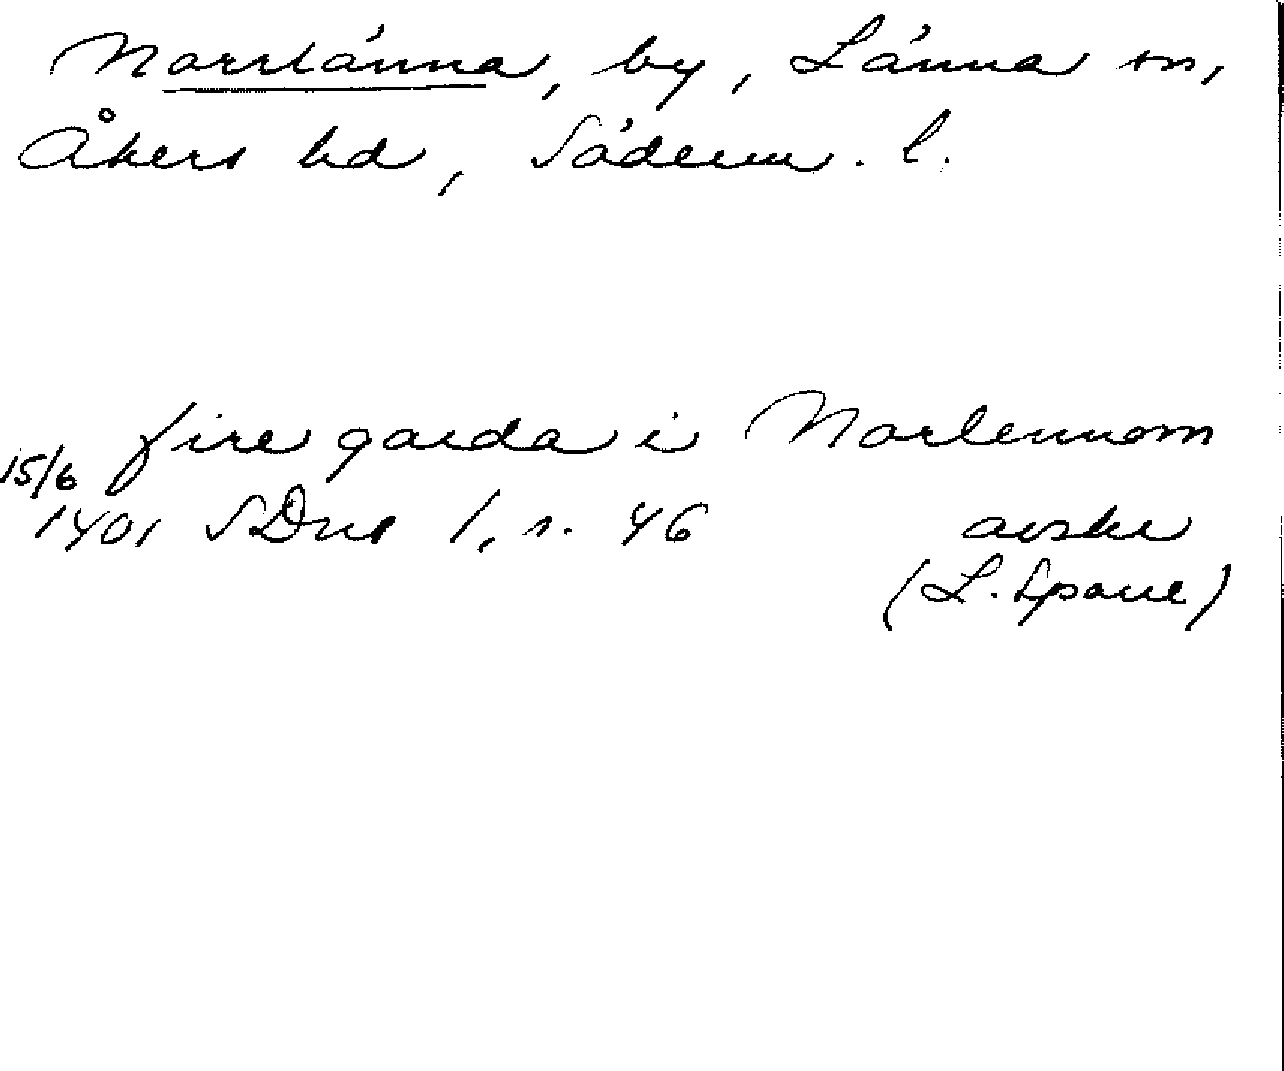 Norrlänna, by, Länna sn,
Åkers hd, Söderm. l.
fire garda i Norlennom
15/6
1401 SDns 1, s. 46 avskr
(L. Sparre)